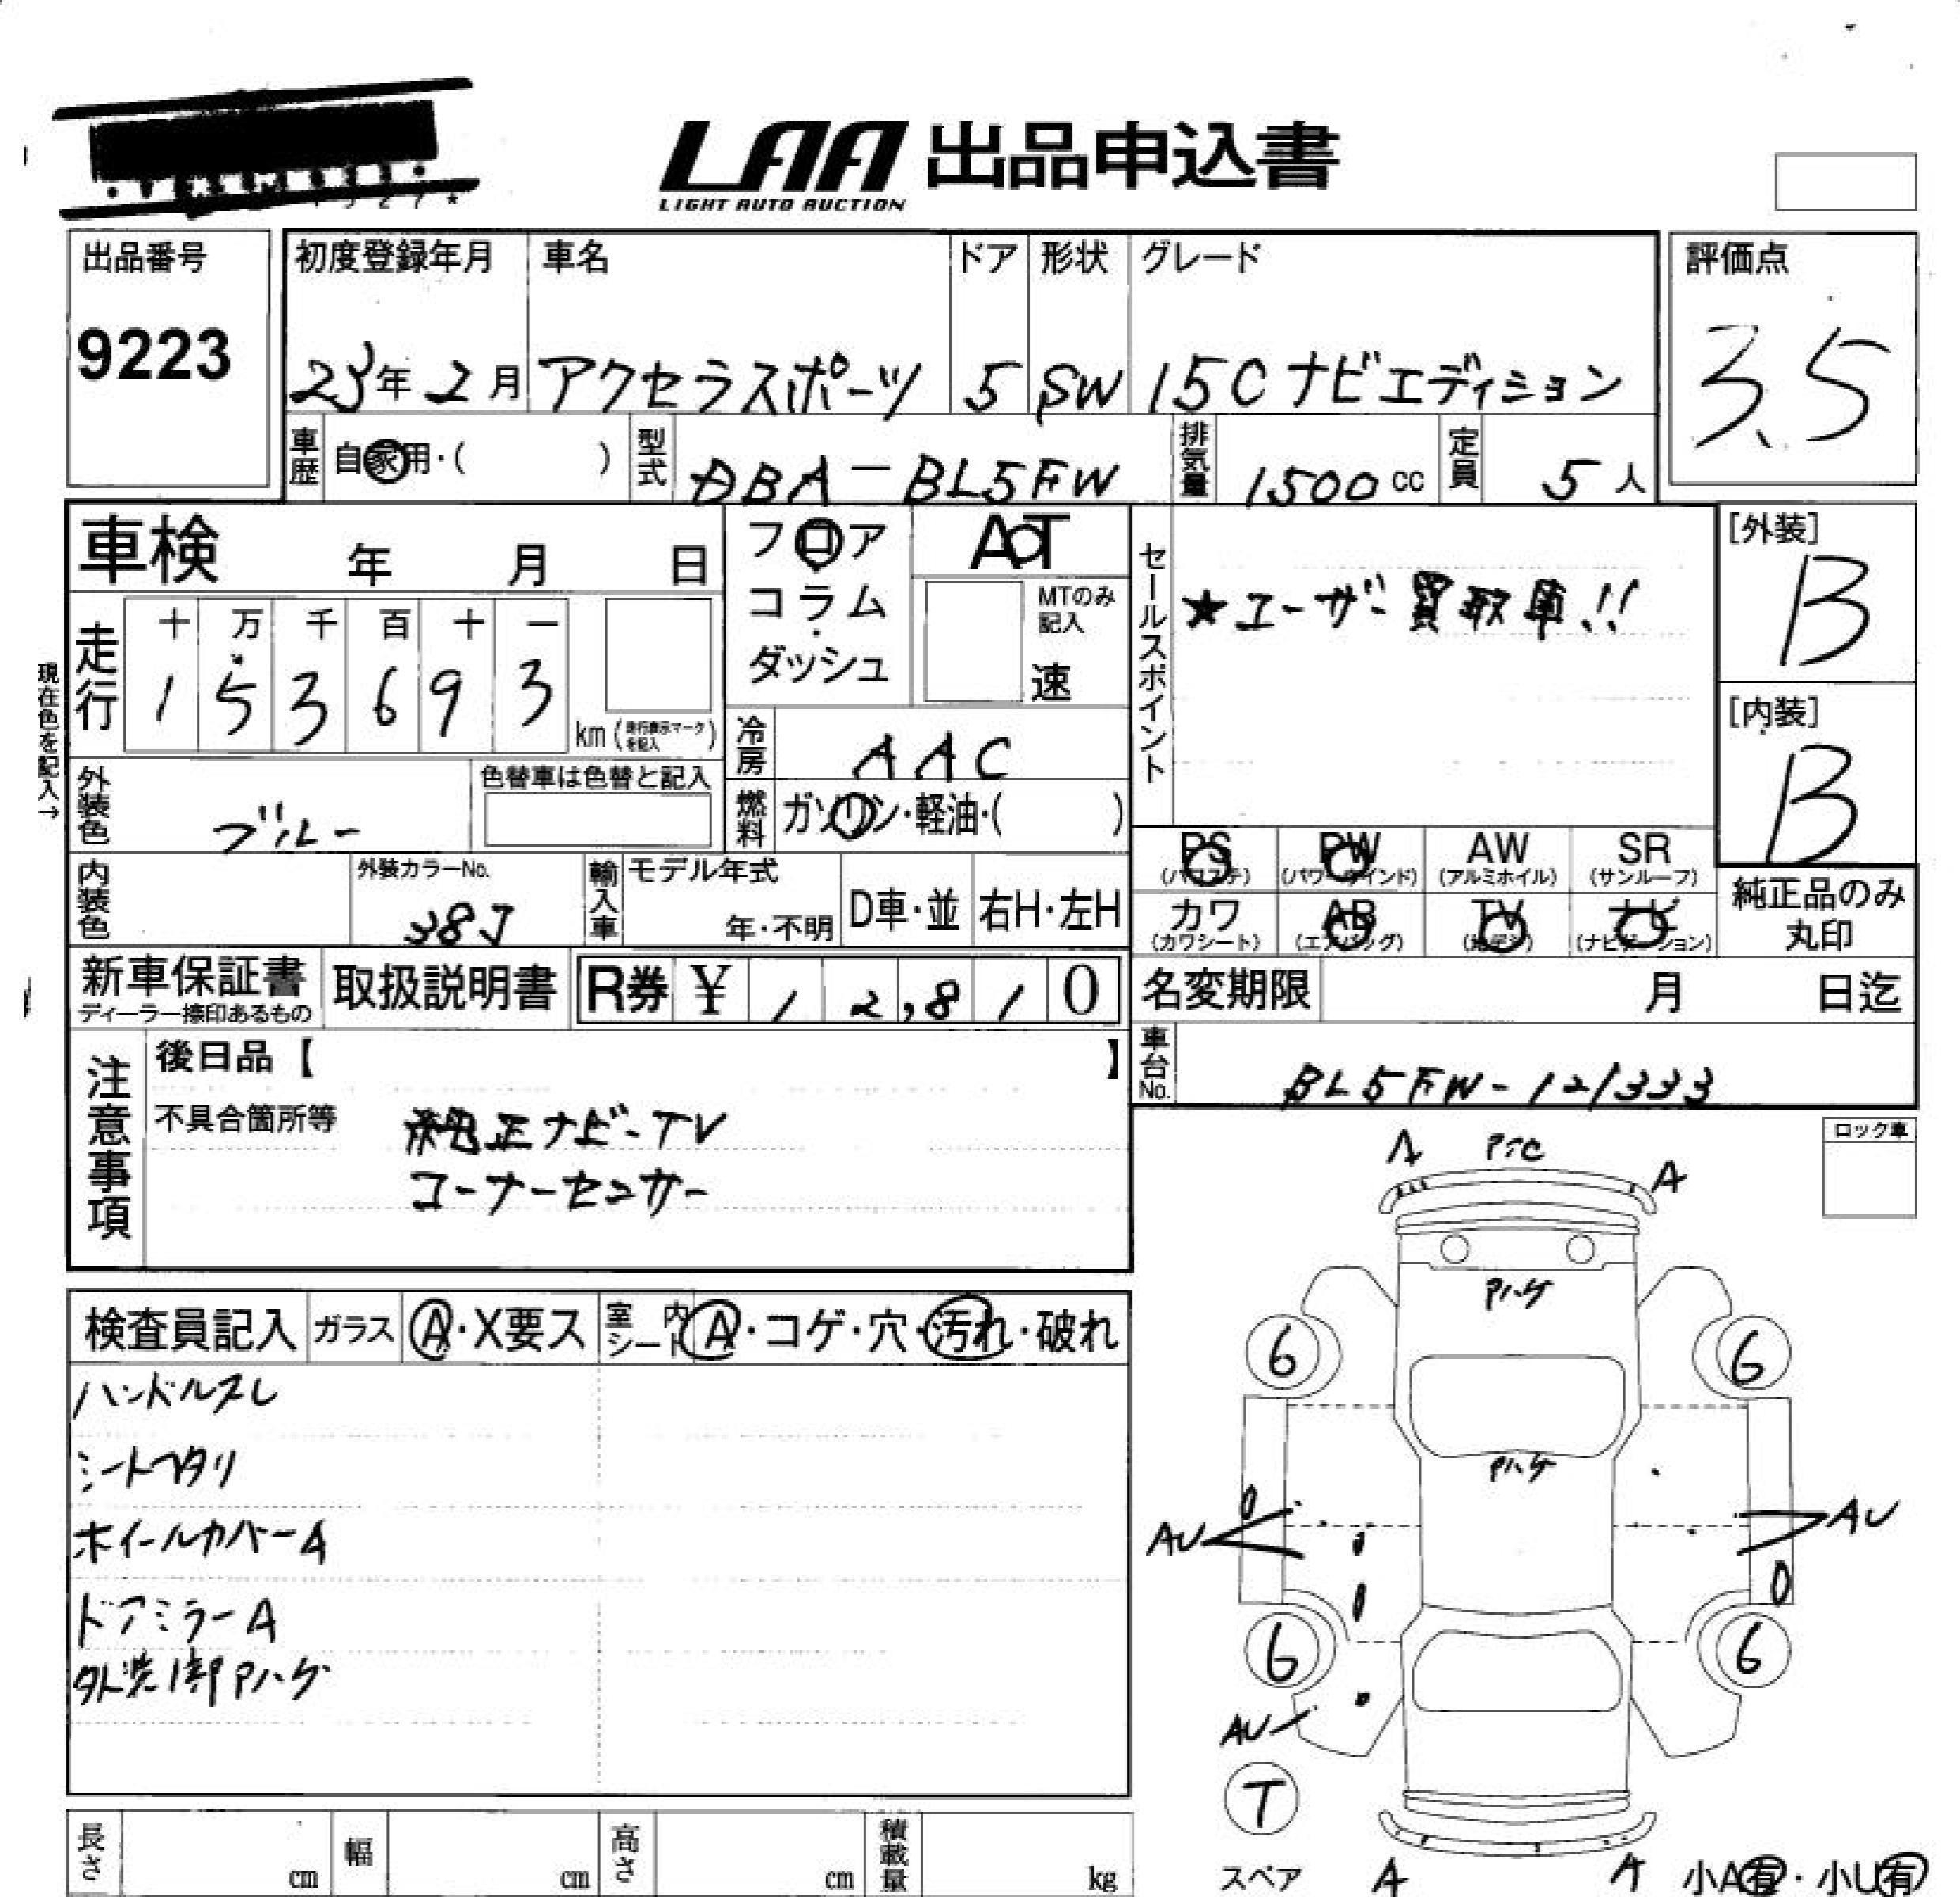 LAA 出品申込書
LIGHT AUTO AUCTION
出品番号
9223
初度登録年月 車名 ドア 形状 グレード
23年2月 アクセラスポーツ 5 SW 15Cナビエディション
評価点
3.5
車歴 自家用・( ) 型式 DBA-BL5FW 排気量 1500cc 定員 5人
車検 年 月 日
フロア
コラム
・
ダッシュ
AT
MTのみ
記入
速
現在色を記入→
走行 十 万 千 百 十 一
1 5 3 6 9 3 km (走行表示マークを記入)
冷房 AAC
外装色 ブルー
色替車は色替と記入
燃料 ガソリン・軽油・( )
内装色
外装カラーNo.
38J
輸入車 モデル年式
年・不明
D車・並 右H・左H
セールスポイント
★ユーザー買取車!!
[外装]
B
[内装]
B
PS PW AW SR
(パワステ) (パワーウインド) (アルミホイル) (サンルーフ)
カワ AB TV ナビ
(カワシート) (エアバッグ) (地デジ) (ナビゲーション)
純正品のみ
丸印
新車保証書 取扱説明書 R券 ¥ 12,810
ディーラー捺印あるもの
名変期限 月 日迄
車台No. BL5FW-121333
注意事項
後日品【 】
不具合箇所等 純正ナビ-TV
コーナーセンサー
検査員記入 ガラス A・X要ス 室内シート A・コゲ・穴・汚れ・破れ
ハンドルスレ
シートヘタリ
ホイールカバーA
ドアミラーA
外装1部Pハゲ
ロック車
A
A
Pハゲ
6
6
Pハゲ
AU
AU
6
6
AU
T
スペア
A
A
小A有・小U有
長さ cm 幅 cm 高さ cm 積載量 kg